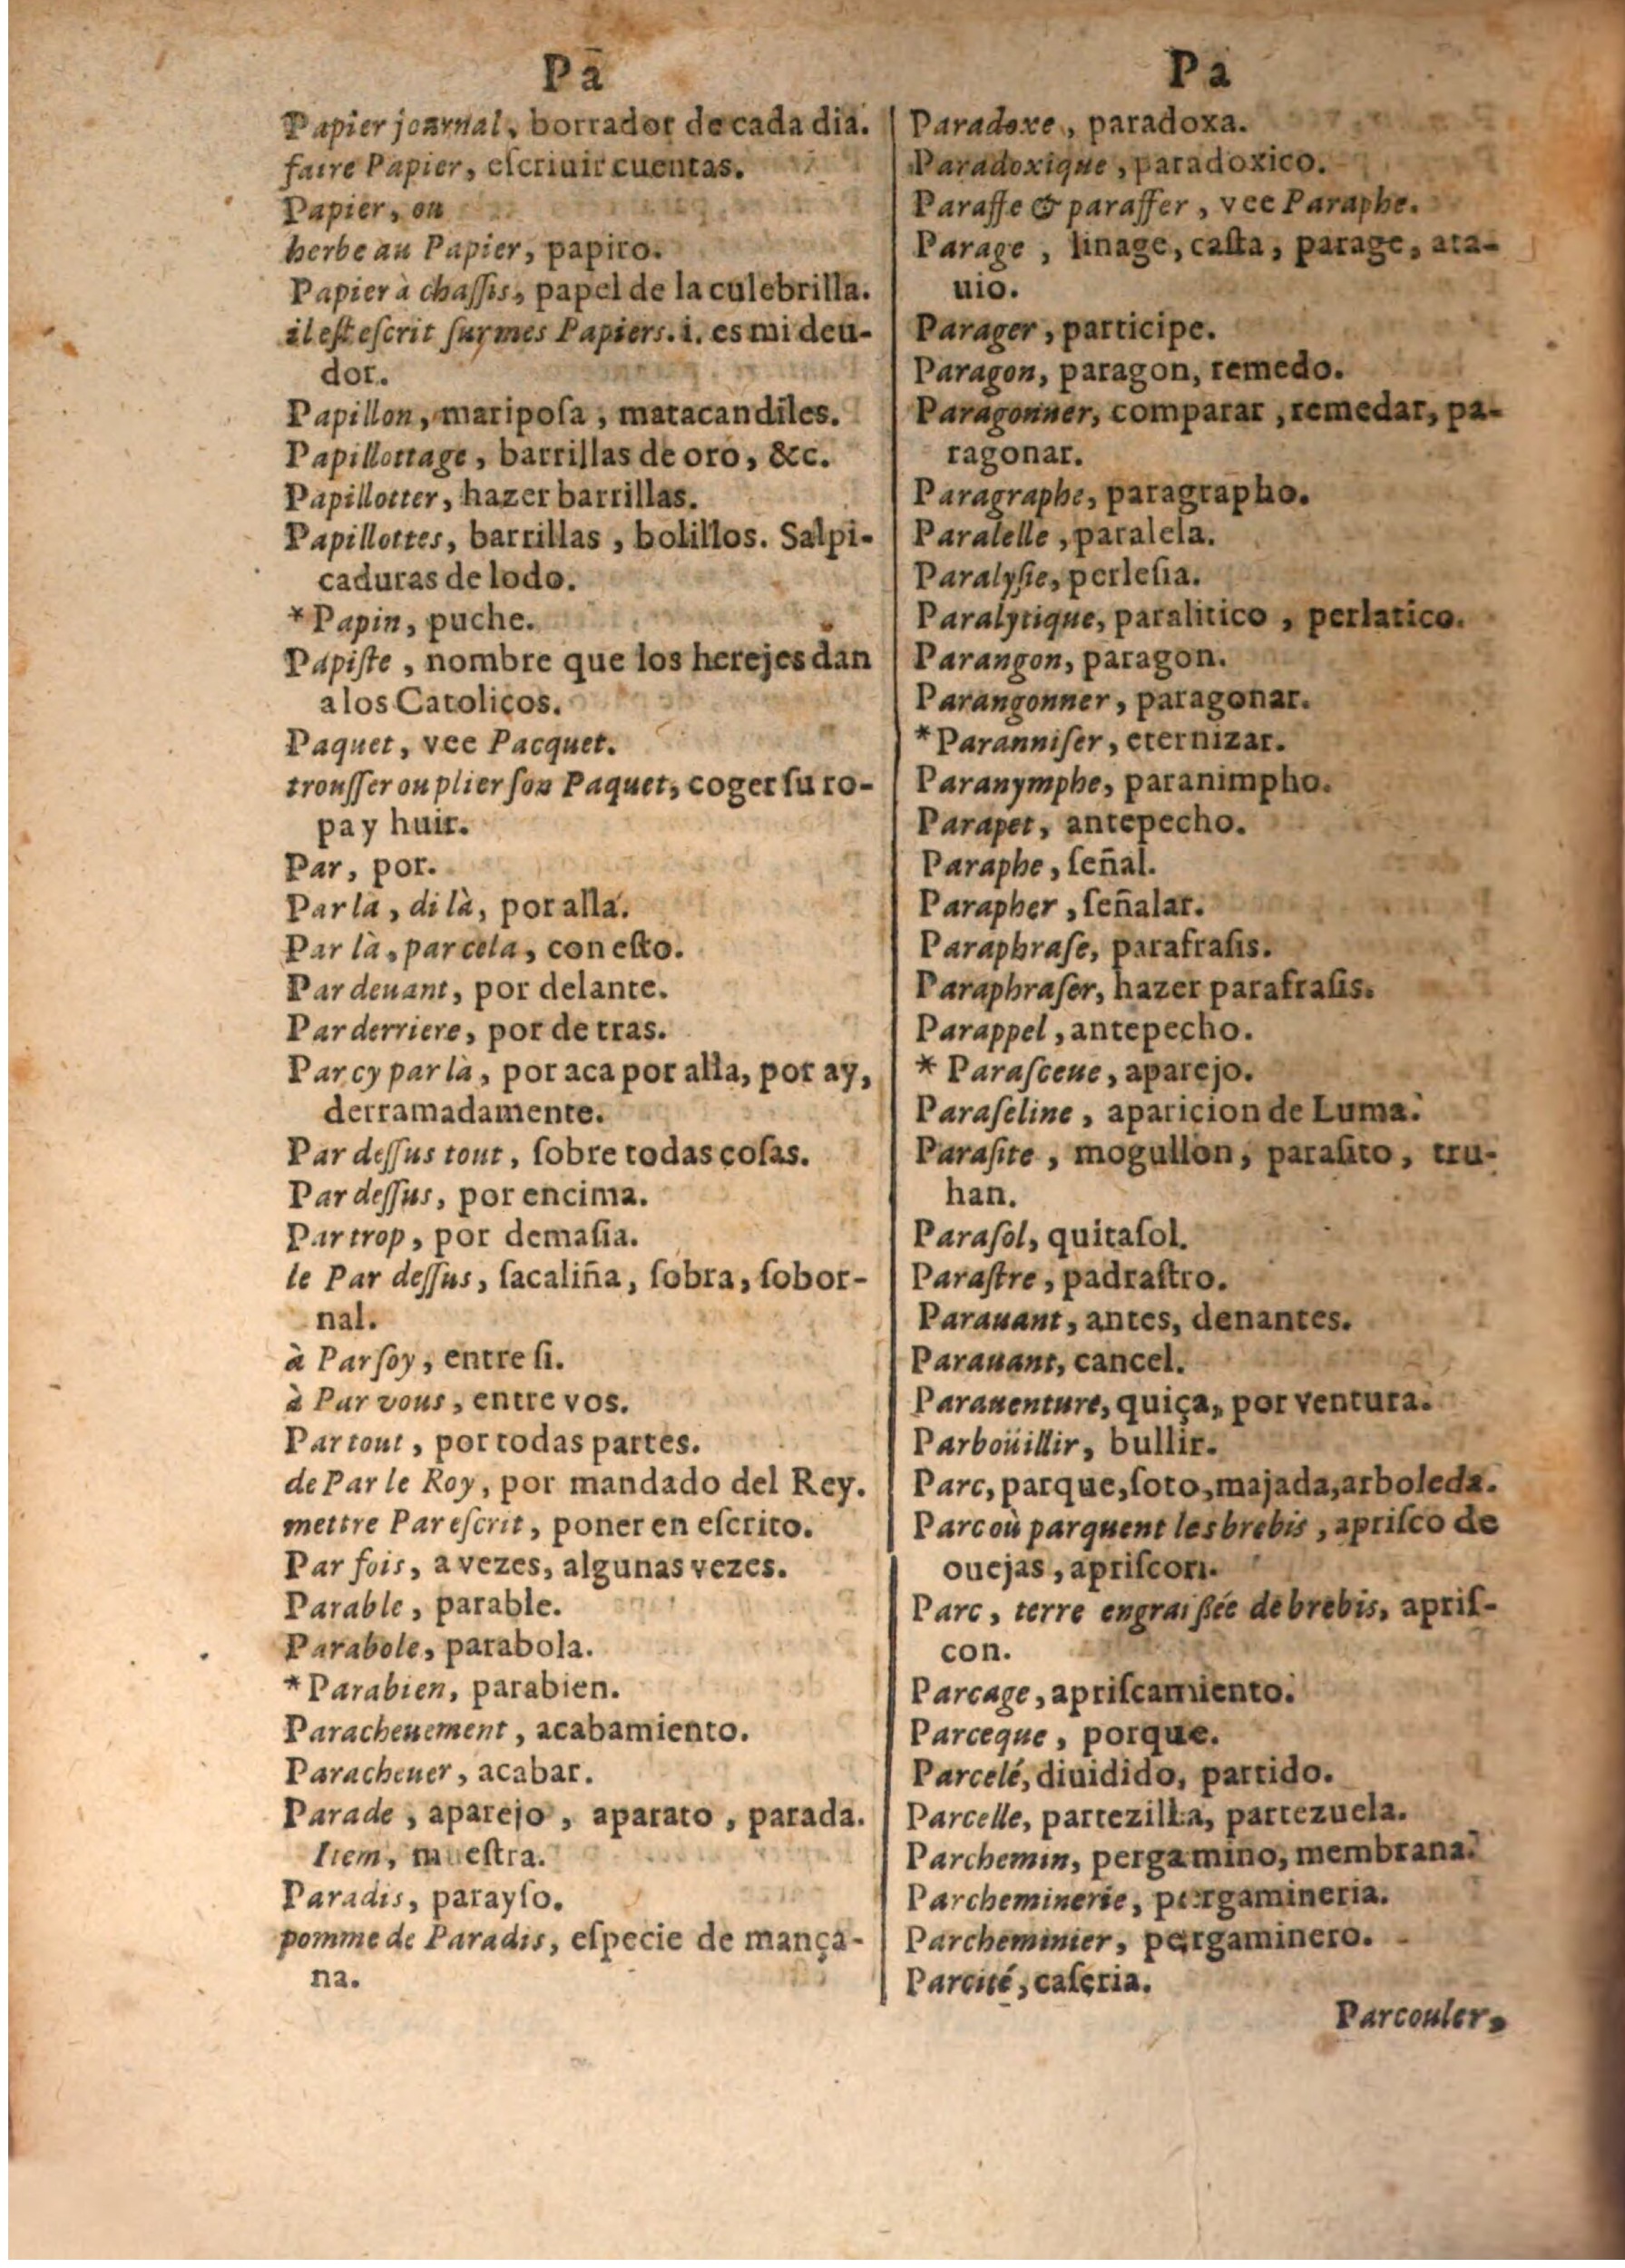 Pa
Papier journal, borrador de cada dia.
faire Papier, eſcriuir cuentas.
Papier, ou
herbe au Papier, papiro.
Papier à chaſſis, papel de la culebrilla.
il eſt eſcrit ſur mes Papiers. i. es mi deu-
dor.
Papillon, maripoſa, matacandiles.
Papillottage, barrillas de oro, &c.
Papillotter, hazer barrillas.
Papillottes, barrillas, bolillos. Salpi-
caduras de lodo.
*Papin, puche.
Papiſte, nombre que los herejes dan
a los Catolicos.
Paquet, vee Pacquet.
trouſſer ou plier ſon Paquet, coger ſu ro-
pa y huir.
Par, por.
Par là, di là, por alla.
Par là, par cela, con eſto.
Par deuant, por delante.
Par derriere, por de tras.
Par cy par là, por aca por alla, por ay,
derramadamente.
Par deſſus tout, ſobre todas coſas.
Par deſſus, por encima.
Par trop, por demaſia.
le Par deſſus, ſacaliña, ſobra, ſobor-
nal.
à Par ſoy, entre ſi.
à Par vous, entre vos.
Par tout, por todas partes.
de Par le Roy, por mandado del Rey.
mettre Par eſcrit, poner en eſcrito.
Par fois, a vezes, algunas vezes.
Parable, parable.
Parabole, parabola.
*Parabien, parabien.
Paracheuement, acabamiento.
Paracheuer, acabar.
Parade, aparejo, aparato, parada.
Item, mueſtra.
Paradis, parayſo.
pomme de Paradis, eſpecie de mança-
na.
Pa
Paradoxe, paradoxa.
Paradoxique, paradoxico.
Paraffe & paraffer, vee Paraphe.
Parage, linage, caſta, parage, ata-
uio.
Parager, participe.
Paragon, paragon, remedo.
Paragonner, comparar, remedar, pa-
ragonar.
Paragraphe, paragrapho.
Paralelle, paralela.
Paralyſie, perleſia.
Paralytique, paralitico, perlatico.
Parangon, paragon.
Parangonner, paragonar.
*Paranniſer, eternizar.
Paranymphe, paranimpho.
Parapet, antepecho.
Paraphe, ſeñal.
Parapher, ſeñalar.
Paraphraſe, parafraſis.
Paraphraſer, hazer parafraſis.
Parappel, antepecho.
* Paraſceue, aparejo.
Paraſeline, aparicion de Luma.
Paraſite, mogullon, paraſito, tru-
han.
Paraſol, quitaſol.
Paraſtre, padraſtro.
Parauant, antes, denantes.
Parauant, cancel.
Parauenture, quiça, por ventura.
Parboüillir, bullir.
Parc, parque, ſoto, majada, arboleda.
Parc où parquent les brebis, apriſco de
ouejas, apriſcon.
Parc, terre engraiſſée de brebis, apriſ-
con.
Parcage, apriſcamiento.
Parceque, porque.
Parcelé, diuidido, partido.
Parcelle, partezilla, partezuela.
Parchemin, pergamino, membrana.
Parcheminerie, pergamineria.
Parcheminier, pergaminero.
Parcité, caſeria.
Parcouler,